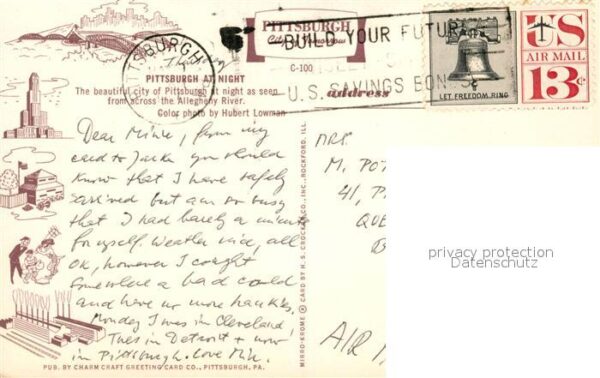 PITTSBURGH
C-100
PITTSBURGH
"BUILD YOUR FUTURE
U.S. SAVINGS BONDS
LET FREEDOM RING
US
AIR MAIL
13c
PITTSBURGH AT NIGHT
The beautiful city of Pittsburgh at night as seen
from across the Allegheny River.
Color photo by Hubert Lowman
address
Thursday
Dear Minie, from my
card to you should
know that I have safely
arrived but am so busy
that I had barely a minute
for myself. Weather nice, all
OK, however I caught
somewhere a bad could
and have no more hankies.
Monday I was in Cleveland,
Tues in Detroit + now
in Pittsburgh. Love
MRS.
M. POT
41, P
QUE
AIR
MIRRO-KROME ® CARD BY H. S. CROCKER CO., INC., ROCKFORD, ILL.
PUB. BY CHARM CRAFT GREETING CARD CO., PITTSBURGH, PA.
privacy protection
Datenschutz